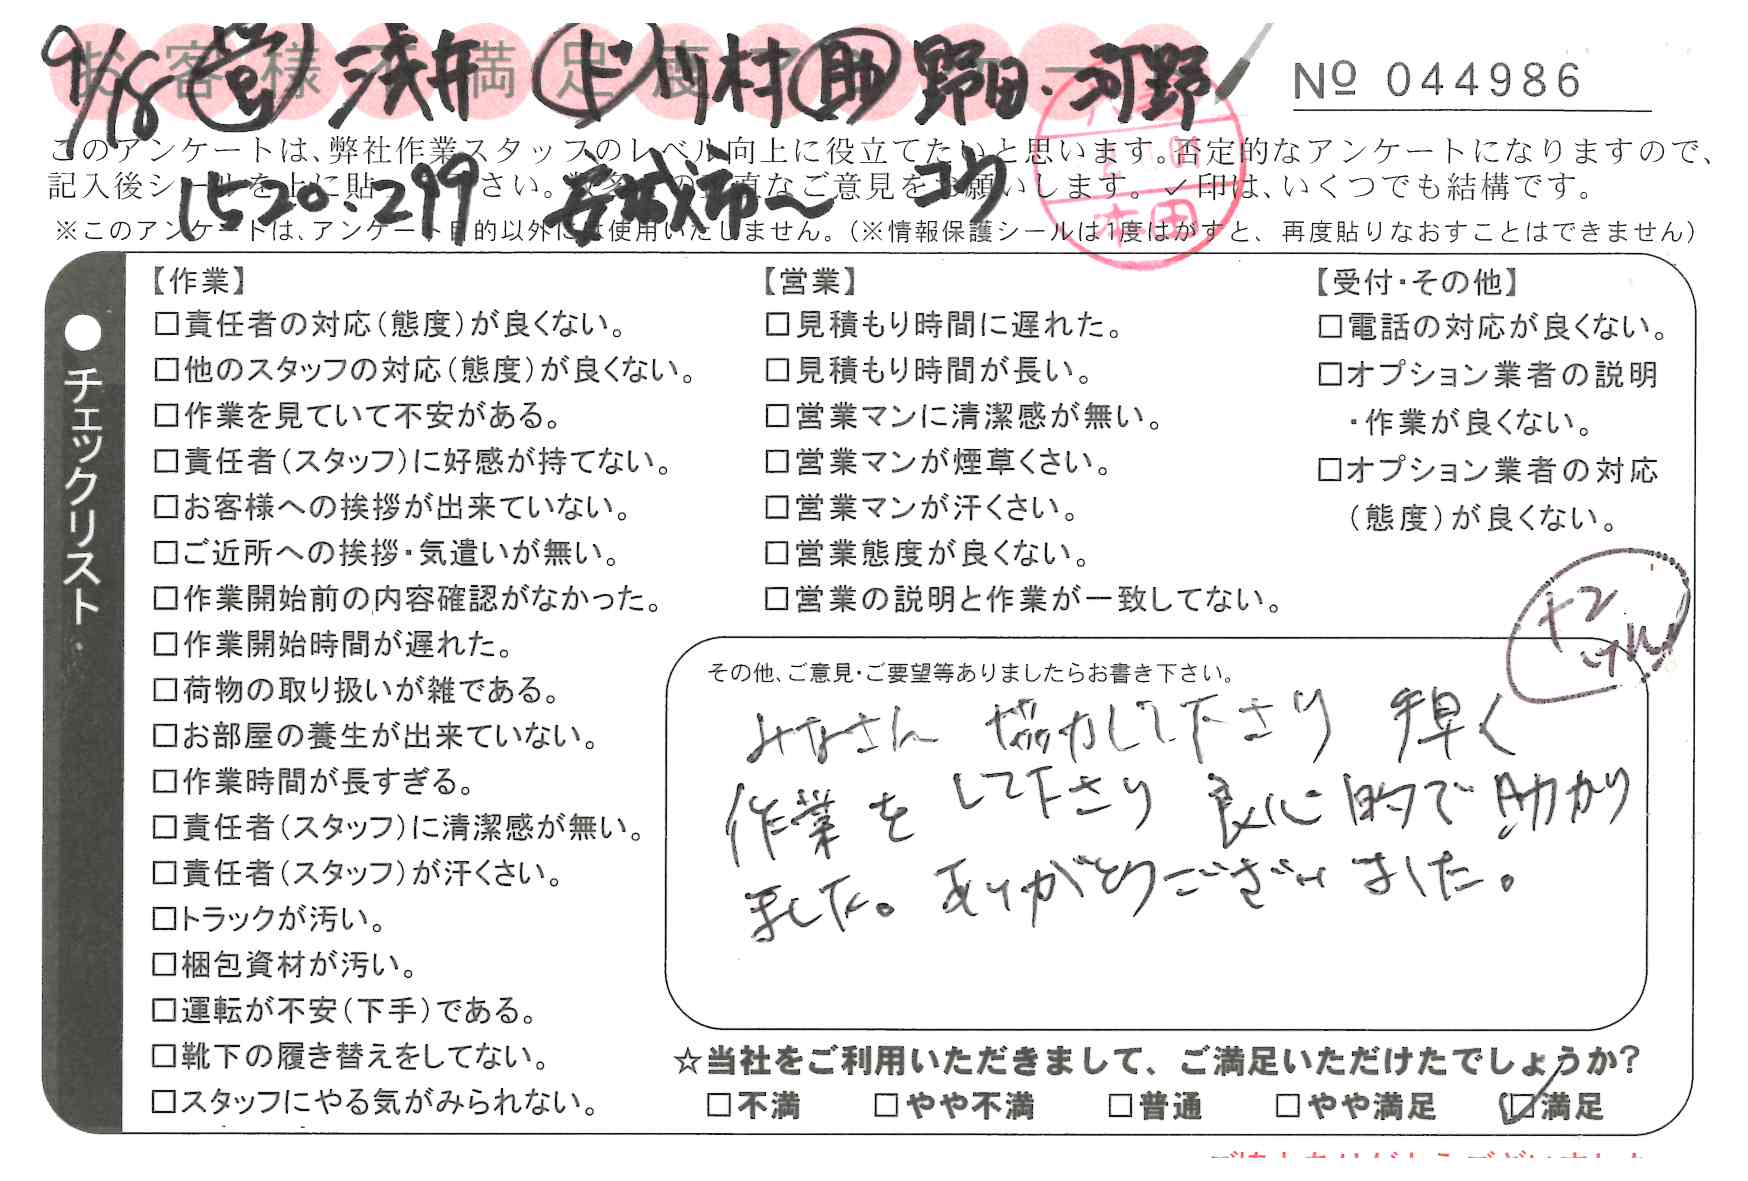 お客様不満足度アンケート
9/18 営 浅井 ド 川村 助 野田・河野
No 044986
このアンケートは、弊社作業スタッフのレベル向上に役立てたいと思います。否定的なアンケートになりますので、
記入後シールを上に貼 さい。数多 の 直なご意見をお願いします。✓印は、いくつでも結構です。
1520.299 安城市〜 コウ
本田
※このアンケートは、アンケート目的以外には使用いたしません。(※情報保護シールは1度はがすと、再度貼りなおすことはできません)
●チェックリスト
【作業】
□責任者の対応(態度)が良くない。
□他のスタッフの対応(態度)が良くない。
□作業を見ていて不安がある。
□責任者(スタッフ)に好感が持てない。
□お客様への挨拶が出来ていない。
□ご近所への挨拶・気遣いが無い。
□作業開始前の内容確認がなかった。
□作業開始時間が遅れた。
□荷物の取り扱いが雑である。
□お部屋の養生が出来ていない。
□作業時間が長すぎる。
□責任者(スタッフ)に清潔感が無い。
□責任者(スタッフ)が汗くさい。
□トラックが汚い。
□梱包資材が汚い。
□運転が不安(下手)である。
□靴下の履き替えをしてない。
□スタッフにやる気がみられない。
【営業】
□見積もり時間に遅れた。
□見積もり時間が長い。
□営業マンに清潔感が無い。
□営業マンが煙草くさい。
□営業マンが汗くさい。
□営業態度が良くない。
□営業の説明と作業が一致してない。
【受付・その他】
□電話の対応が良くない。
□オプション業者の説明
・作業が良くない。
□オプション業者の対応
(態度)が良くない。
その他、ご意見・ご要望等ありましたらお書き下さい。
みなさん 協力して下さり 手早く
作業を して下さり 良心的で 助かり
ました。ありがとうございました。
☆当社をご利用いただきまして、ご満足いただけたでしょうか?
□不満 □やや不満 □普通 □やや満足 ☑満足